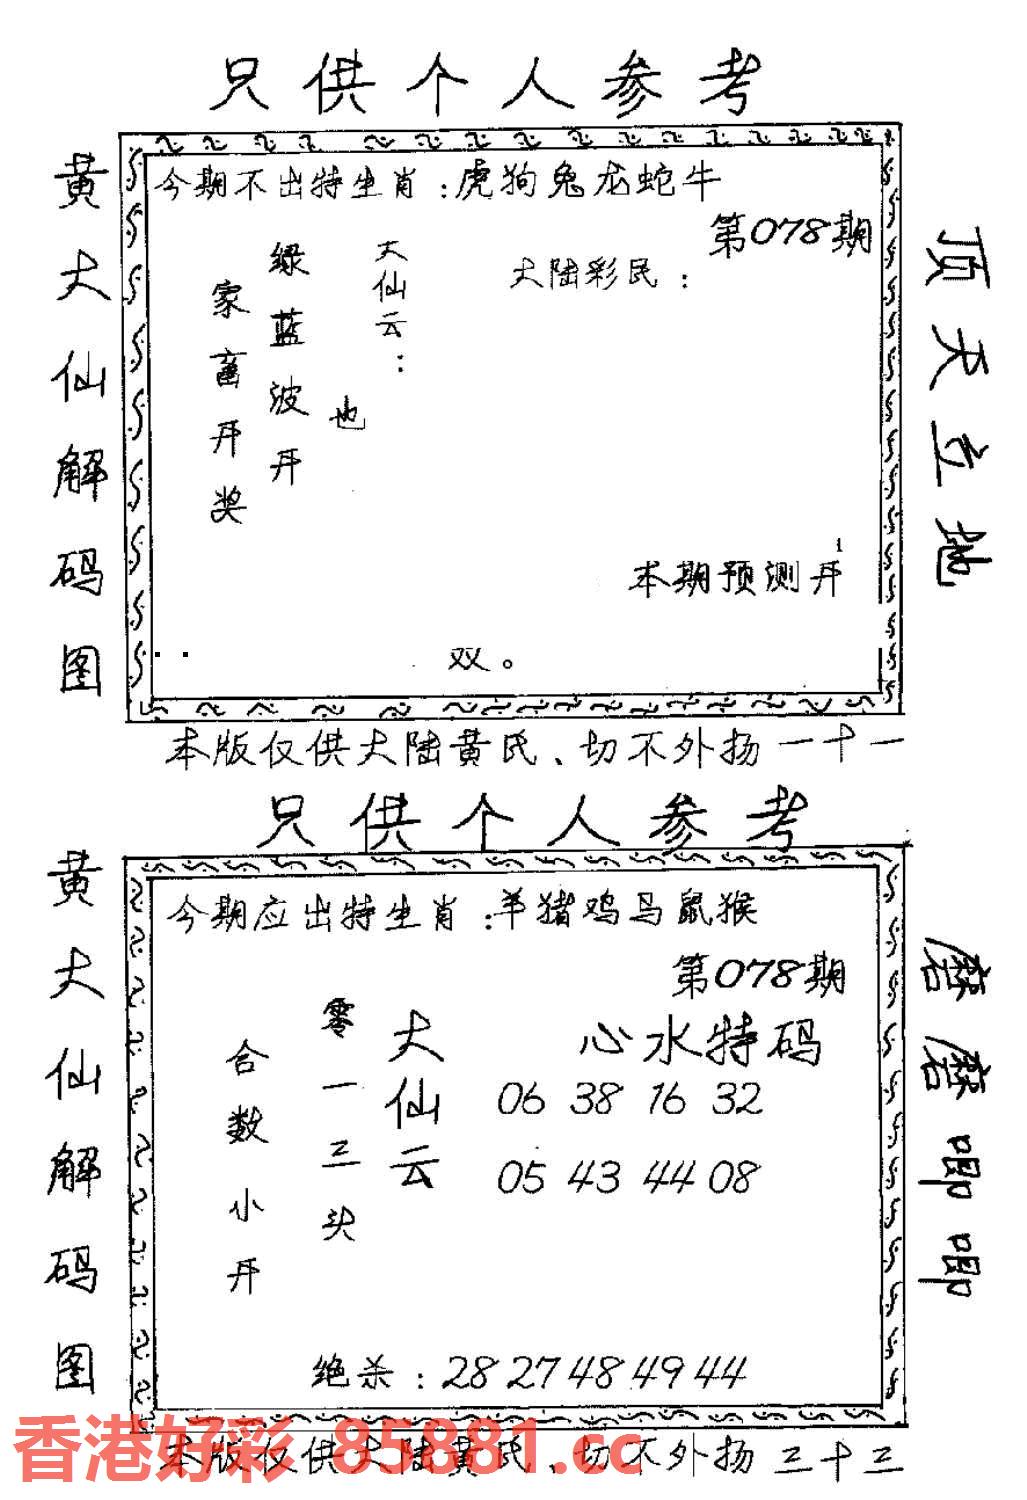 只供个人参考
黄大仙解码图
今期不出特生肖：虎狗兔龙蛇牛
第078期
大陆彩民：
大仙云：
绿蓝波开也
家畜开奖
本期预测开
双。
顶天立地
本版仅供大陆黄氏、切不外扬一十一
只供个人参考
黄大仙解码图
今期应出特生肖：羊猪鸡马鼠猴
第078期
心水特码
06 38 16 32
05 43 44 08
大仙云
零一三头
合数小开
绝杀：28 27 48 49 44
蘑蘑唧唧
本版仅供大陆黄氏、切不外扬三十三
香港好彩 85881.cc